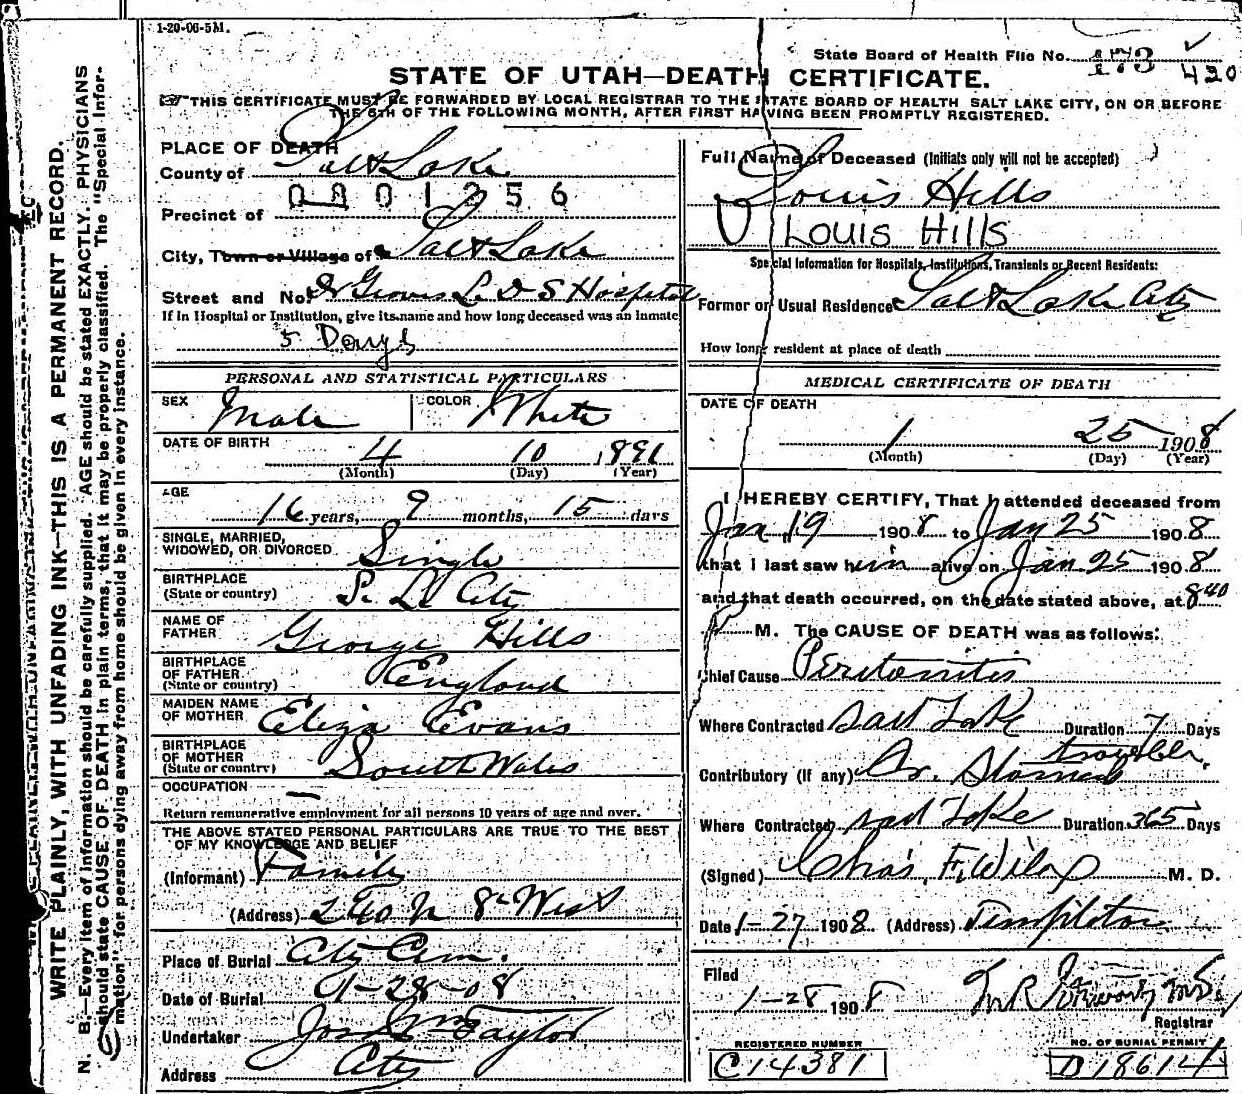 1-20-06-5M.
State Board of Health File No. 173 420
STATE OF UTAH—DEATH CERTIFICATE.
THIS CERTIFICATE MUST BE FORWARDED BY LOCAL REGISTRAR TO THE STATE BOARD OF HEALTH SALT LAKE CITY, ON OR BEFORE
THE 5TH OF THE FOLLOWING MONTH, AFTER FIRST HAVING BEEN PROMPTLY REGISTERED.
PLACE OF DEATH
County of Salt Lake
Precinct of
City, Town or Village of Salt Lake
Street and No. L D S Hospital
If in Hospital or Institution, give its name and how long deceased was an inmate
5 Days
PERSONAL AND STATISTICAL PARTICULARS
SEX Male COLOR White
DATE OF BIRTH 4 10 1891
(Month) (Day) (Year)
AGE
16 years, 9 months, 15 days
SINGLE, MARRIED,
WIDOWED, OR DIVORCED Single
BIRTHPLACE
(State or country) S. L. City
NAME OF
FATHER George Hills
BIRTHPLACE
OF FATHER
(State or country) England
MAIDEN NAME
OF MOTHER Eliza Evans
BIRTHPLACE
OF MOTHER
(State or country) South Wales
OCCUPATION —
Return remunerative employment for all persons 10 years of age and over.
THE ABOVE STATED PERSONAL PARTICULARS ARE TRUE TO THE BEST
OF MY KNOWLEDGE AND BELIEF
(Informant) Family
(Address) 240 N 8th West
Place of Burial City Cem.
Date of Burial 1-28-08
Undertaker Jos Wm Taylor
Address City
Full Name of Deceased (Initials only will not be accepted)
Louis Hills
LOUIS HILLS
Special Information for Hospitals, Institutions, Transients or Recent Residents:
Former or Usual Residence Salt Lake City
How long resident at place of death
MEDICAL CERTIFICATE OF DEATH
DATE OF DEATH
1 25 1908
(Month) (Day) (Year)
I HEREBY CERTIFY, That I attended deceased from
Jan 19 1908 to Jan 25 1908
that I last saw him alive on Jan. 25 1908
and that death occurred, on the date stated above, at 8 40
P M. The CAUSE OF DEATH was as follows:
Chief Cause Peritonitis
Where Contracted Salt Lake Duration 7 Days
Contributory (If any) Stomach trouble.
Where Contracted Salt Lake Duration 365 Days
(Signed) Chas. F. Wilcox M. D.
Date 1-27 1908 (Address) Templeton
Filed
1-28 1908
Registrar
REGISTERED NUMBER
C 14381
NO. OF BURIAL PERMIT
D 18614
WRITE PLAINLY, WITH UNFADING INK—THIS IS A PERMANENT RECORD.
N. B.—Every item of information should be carefully supplied. AGE should be stated EXACTLY. PHYSICIANS
should state CAUSE OF DEATH in plain terms, that it may be properly classified. The "Special Infor-
mation" for persons dying away from home should be given in every instance.